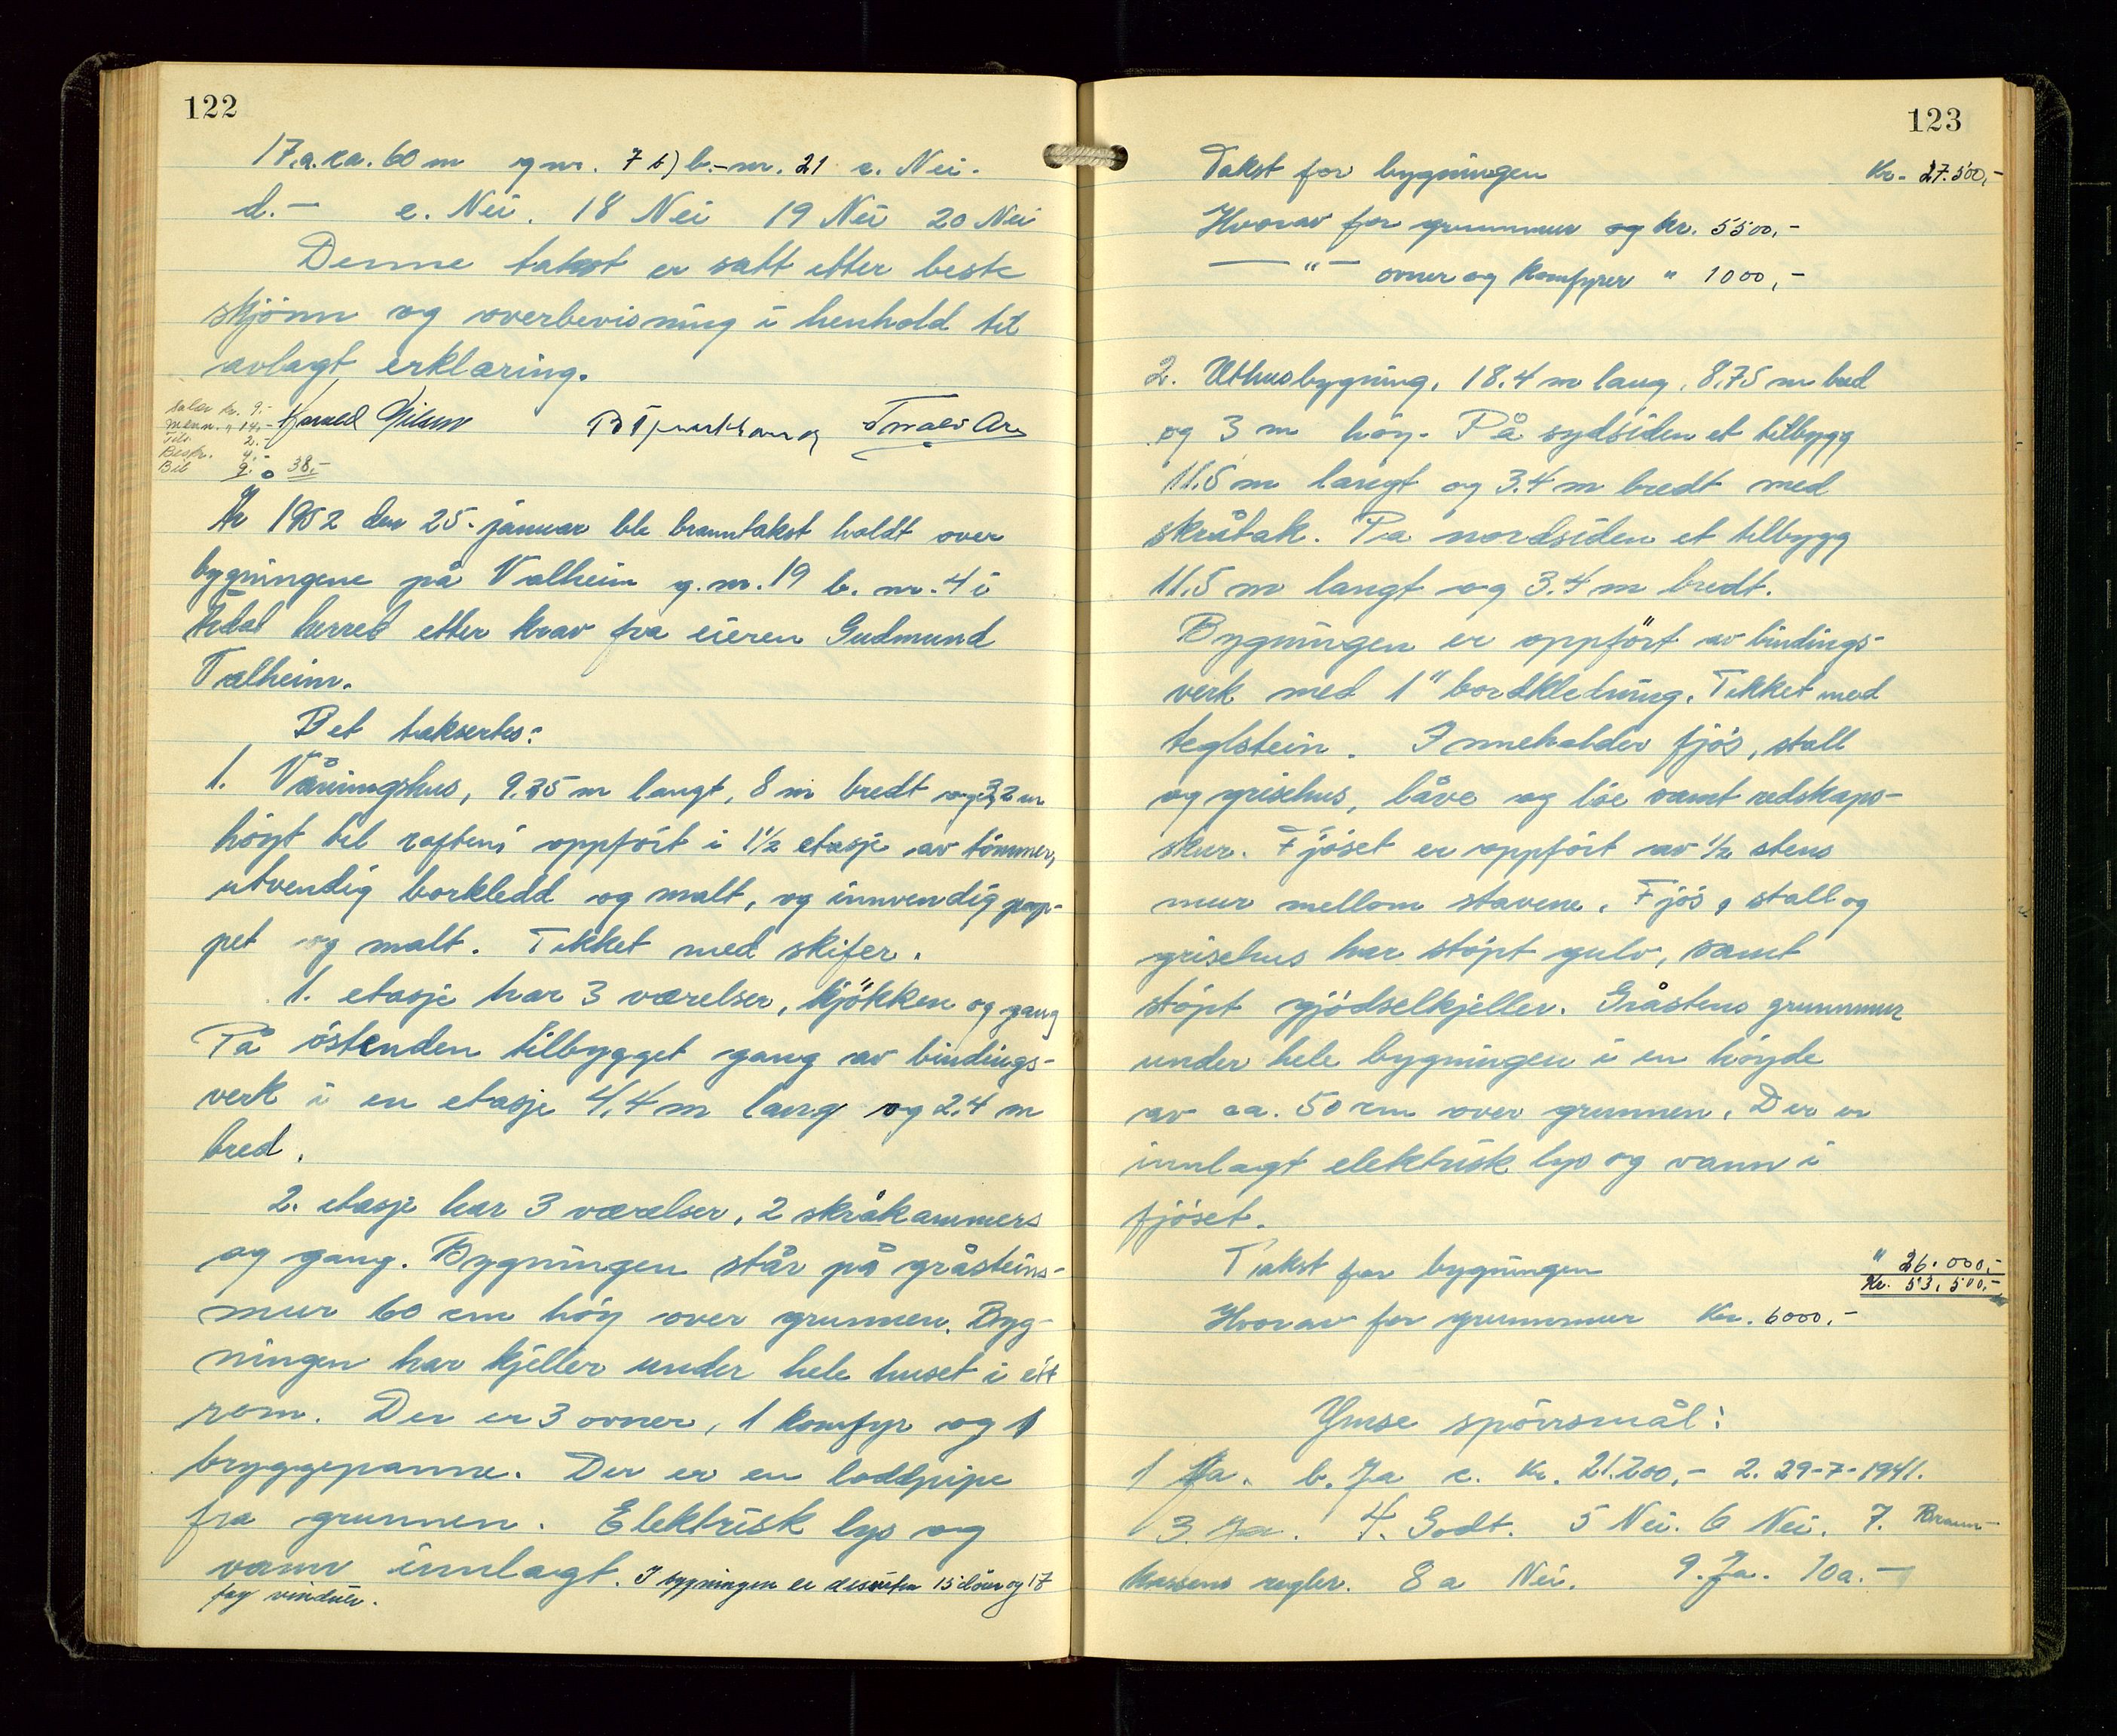 122
17.a. ca. 60 m gnr. 7 b) b.-nr. 21 c. Nei.
d. - e. Nei. 18 Nei 19 Nei 20 Nei
Denne takst er satt etter beste
skjönn og overbevisning i henhold til
avlagt erklæring.
Salær kr. 9.-
" 14,-
2.-
Beskr. 4,-
Bil 9.- 38,-
Harald Nilsen
År 1952 den 25. januar ble branntakst holdt over
bygningene på Valheim g.nr. 19 b. nr. 4 i
herred etter krav fra eieren Gudmund
Valheim.
Det taksertes:
1. Våningshus, 9.35 m langt, 8 m bredt og 3,2 m
höyt til raften, oppfört i 1½ etasje av tömmer,
utvendig borkledd og malt, og innvendig pap-
pet og malt. Tekket med skifer.
1. etasje har 3 værelser, kjökken og gang
På östenden tilbygget gang av bindings-
verk i en etasje 4,4 m lang og 2.4 m
bred.
2. etasje har 3 værelser, 2 skråkammers
og gang. Bygningen står på gråsteins-
mur 60 cm höy over grunnen. Byg-
ningen har kjeller under hele huset i ett
rom. Der er 3 ovner, 1 komfyr og 1
bryggepanne. Der er en loddpipe
fra grunnen. Elektrisk lys og
vann innlagt. I bygningen er dessuten 15 dörer og 17
fag vinduer.
123
Takst for bygningen Kr. 27.500,-
Hvorav for grunnmur og kr. 5500,-
— " — ovner og komfyrer " 1000,-
2. Uthusbygning, 18.4 m lang, 8.75 m bred
og 3 m höy. På sydsiden et tilbygg
11.5 m langt og 3.4 m bredt med
skråtak. På nordsiden et tilbygg
11.5 m langt og 3.4 m bredt.
Bygningen er oppfört av bindings-
verk med 1" bordkledning. Tekket med
teglstein. Inneholder fjös, stall
og grisehus, låve og löe samt redskaps-
skur. Fjöset er oppfört av ½ stens
mur mellom stavene. Fjös, stall og
grisehus har stöpt gulv, samt
stöpt gjödselkjeller. Gråstens grunnmur
under hele bygningen i en höyde
av ca. 50 cm over grunnen. Der er
innlagt elektrisk lys og vann i
fjöset.
Takst for bygningen " 26.000,-
Kr. 53.500,-
Hvorav for grunnmur Kr. 6000,-
Ymse spörrsmål:
1 Ja. b. Ja c. Kr. 21.200,- 2. 29-7-1941.
3. Ja. 4. Godt. 5 Nei. 6 Nei. 7. Brann-
kassens regler. 8 a Nei. 9. Ja. 10a. -